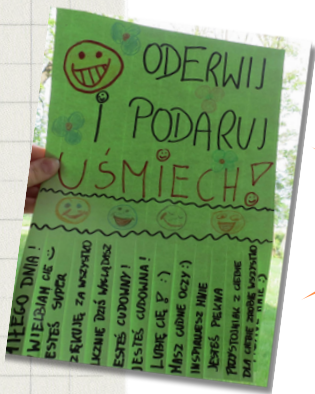 ODERWIJ
I PODARUJ
UŚMIECH!
MIŁEGO DNIA!
WIELBIAM CIĘ
JESTEŚ SUPER
ZA WSZYSTKO
ŚLICZNIE DZIŚ WYGLĄDASZ
JESTEŚ CUDOWNY!
JESTEŚ CUDOWNA!
LUBIĘ CIĘ :)
MASZ CUDNE OCZY :)
INSPIRUJESZ MNIE
JESTEŚ PIĘKNA
PRZYSTOJNIAK Z CIEBIE
DLA CIEBIE ZAWSZE